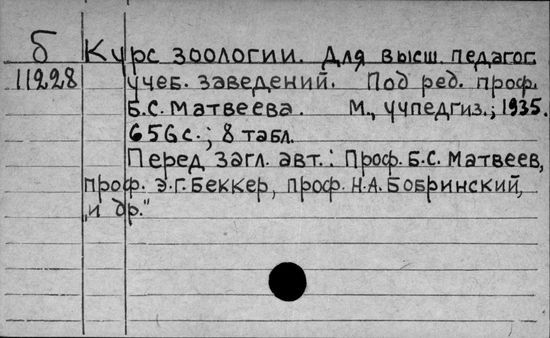 б Курс зоологии. Для высш. педагог.
11228 учеб. заведений. Под ред. проф.
Б.С. Матвеева. М., учпедгиз.; 1935.
656 с.; 8 табл.
Перед загл. авт.: Проф. Б.С. Матвеев,
проф. Э.Г. Беккер, проф. Н.А. Бобринский,
„и др."